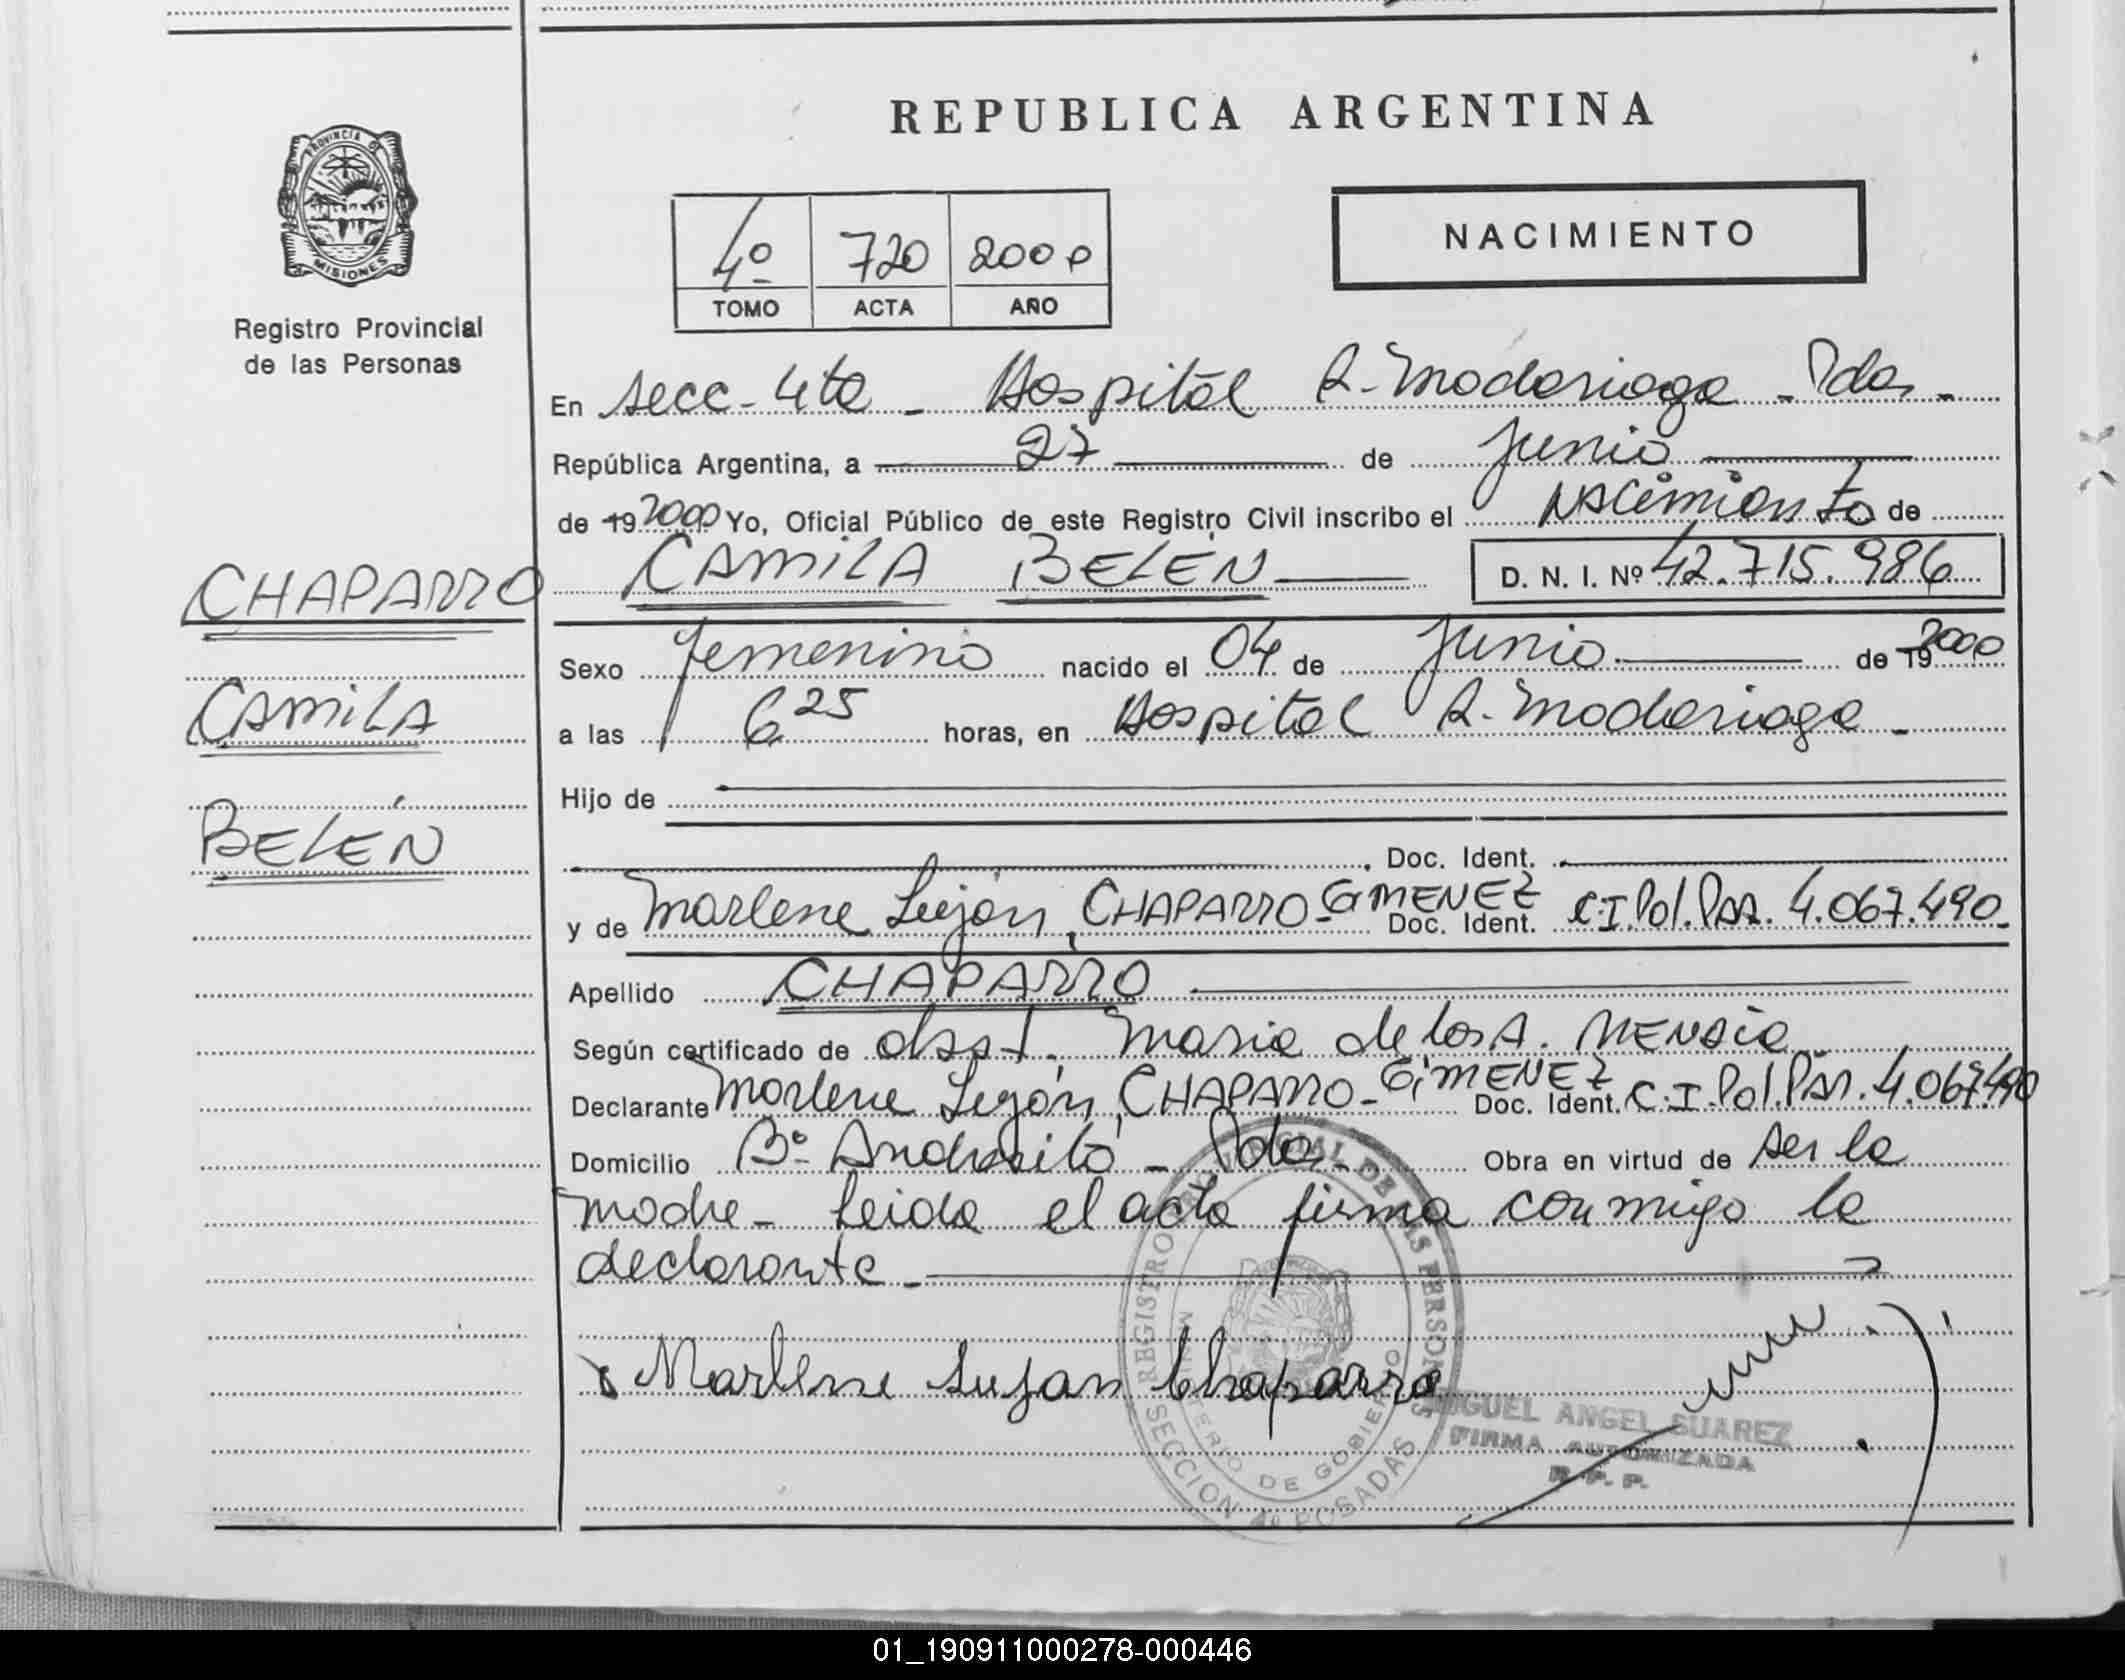 REPUBLICA ARGENTINA
PROVINCIA DE
MISIONES
Registro Provincial
de las Personas
4º 720 2000
TOMO ACTA AÑO
NACIMIENTO
En secc - 4ta - Hospital R. Madariaga - Pdas -
República Argentina, a 27 de Junio
de 19 2000 Yo, Oficial Público de este Registro Civil inscribo el NAcimiento de
CHAPARRO
CAMILA BELÉN D. N. I. Nº 42.715.986
Sexo femenino nacido el 04 de Junio de 19 2000
CAMILA
a las 6 25 horas, en Hospital R. Madariaga -
Hijo de
BELÉN
Doc. Ident.
y de Marlene Luján, CHAPARRO - GIMENEZ Doc. Ident. C.I. Pol. Par. 4.067.490
Apellido CHAPARRO
Según certificado de obst. Maria de los A. MENDEZ
Declarante Marlene Luján, CHAPARRO - GIMENEZ Doc. Ident. C.I. Pol. Par. 4.067.490
Domicilio Bº Andresito - Pdas - Obra en virtud de ser la
madre - Leida el acta firma conmigo la
declarante -
x Marlene Lujan Chaparro
REGISTRO PROVINCIAL DE LAS PERSONAS
MINISTERIO DE GOBIERNO
SECCION 4º POSADAS
MIGUEL ANGEL SUAREZ
FIRMA AUTORIZADA
R. P. P.
01_190911000278-000446